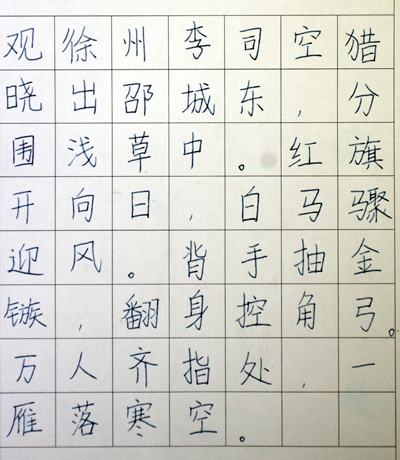 观徐州李司空猎
晓出邵城东,分
围浅草中。红旗
开向日,白马骤
迎风。背手抽金
镞,翻身控角弓。
万人齐指处,一
雁落寒空。